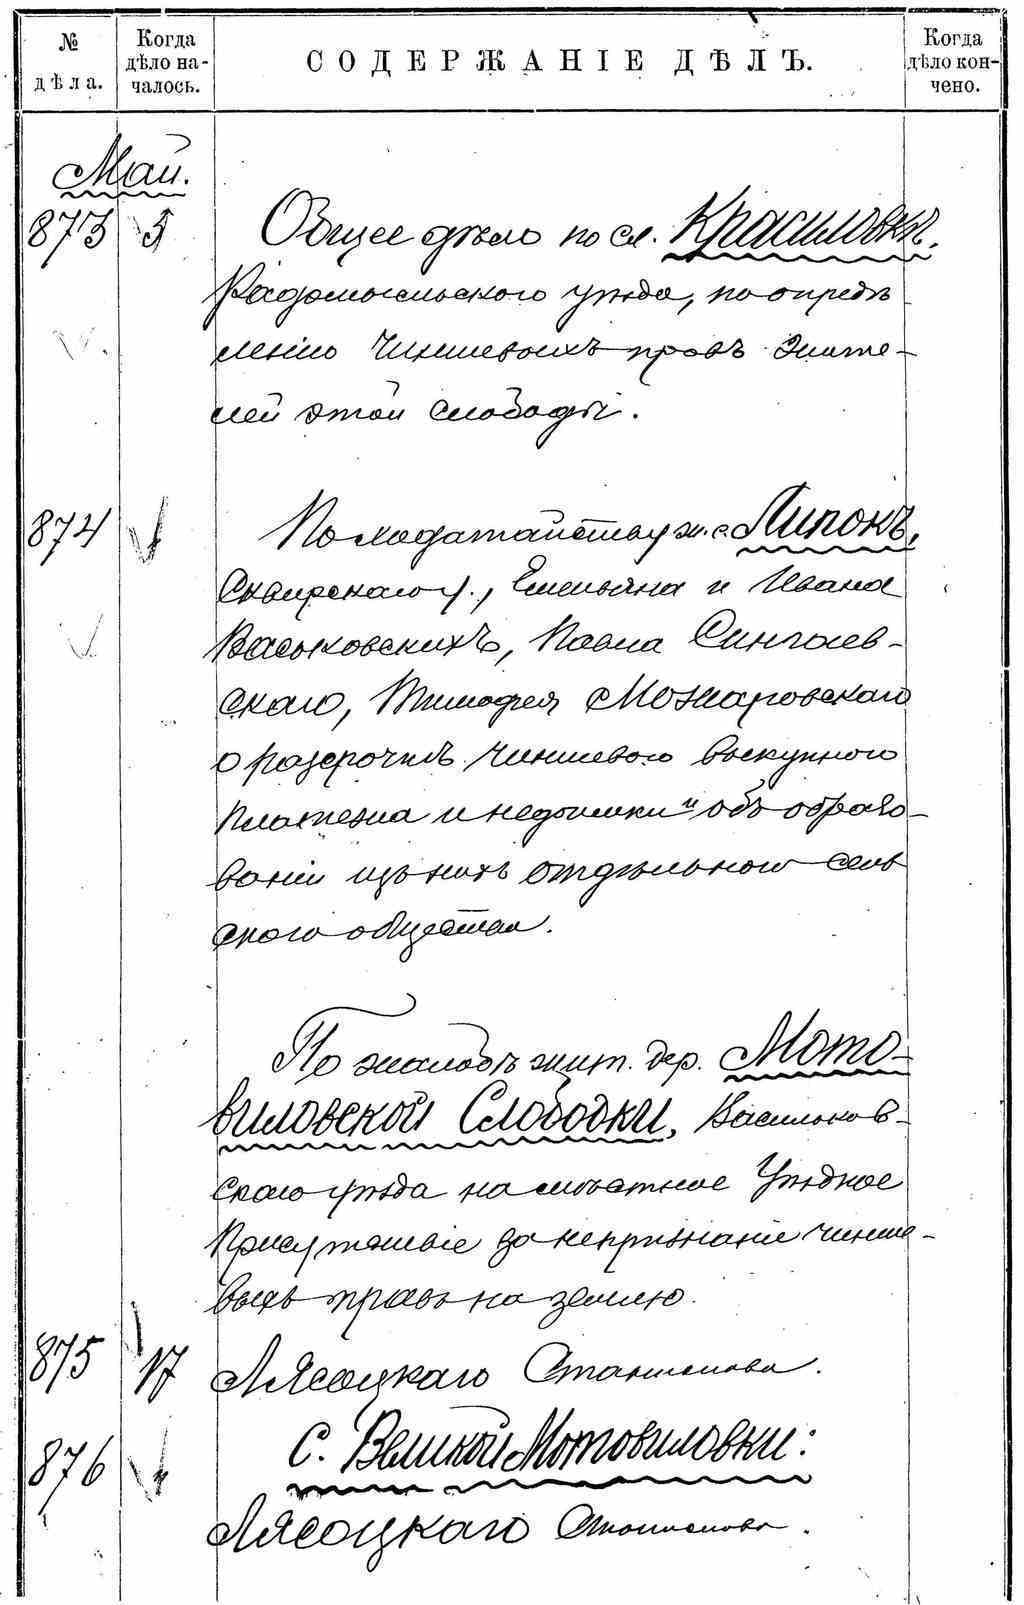 № дѣла.
Когда дѣло на-
чалось.
СОДЕРЖАНІЕ ДѢЛЪ.
Когда дѣло кон-
чено.
Май.
873 5 Общее дѣло по сл. Красиловкѣ,
Радомысльскаго уѣзда, по опредѣ
ленію чиншевыхъ правъ жите-
лей этой слободы.
874 По ходатайству ж. с. Липокъ,
Сквирскаго у., Емельяна и Ивана
Васьковскихъ, Павла Сингаев-
скаго, ТимофеяМожаровскаго
о разсрочкѣ чиншеваго выкупного
платежа и недоимки и объ образо-
ваніи изъ нихъ отдѣльнаго сель
скаго общества.
По жалобѣ жит. дер. Мото-
виловской Слободки, Васильков-
скаго уѣзда на мѣстное Уѣздное
Присутствіе за непризнаніе чинше-
выхъ правъ на землю.
875 17 Лясоцкаго Станислава.
876 С. Великой Мотовиловки:
Лясоцкаго Станислава.